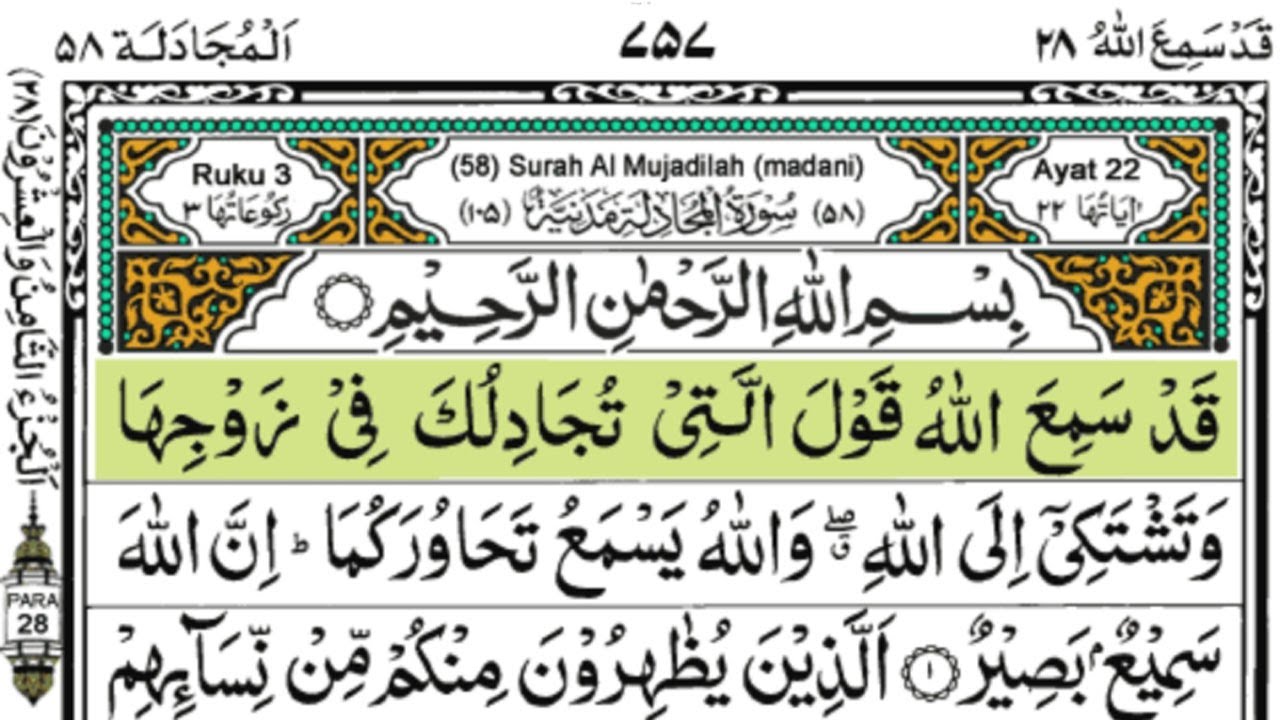 قَدْ سَمِعَ اللّٰهُ ٢٨
٧٥٧
اَلْمُجَادَلَة ٥٨
Ayat 22
اٰيَاتُهَا ٢٢
(58) Surah Al Mujadilah (madani)
(٥٨) سُوْرَةُ الْمُجَادِلَةِ مَدَنِيَّةٌ (١٠٥)
Ruku 3
رُكُوْعَاتُهَا ٣
بِسْمِ اللّٰهِ الرَّحْمٰنِ الرَّحِيْمِ
قَدْ سَمِعَ اللّٰهُ قَوْلَ الَّتِىْ تُجَادِلُكَ فِىْ زَوْجِهَا
وَتَشْتَكِىْٓ اِلَى اللّٰهِ ۖق وَاللّٰهُ يَسْمَعُ تَحَاوُرَكُمَا ؕ اِنَّ اللّٰهَ
سَمِيْعٌۢ بَصِيْرٌ ١ اَلَّذِيْنَ يُظٰهِرُوْنَ مِنْكُمْ مِّنْ نِّسَآئِهِمْ
اَلْجُزْءُ الثَّامِنُ وَالْعِشْرُوْنَ (٢٨)
PARA
28